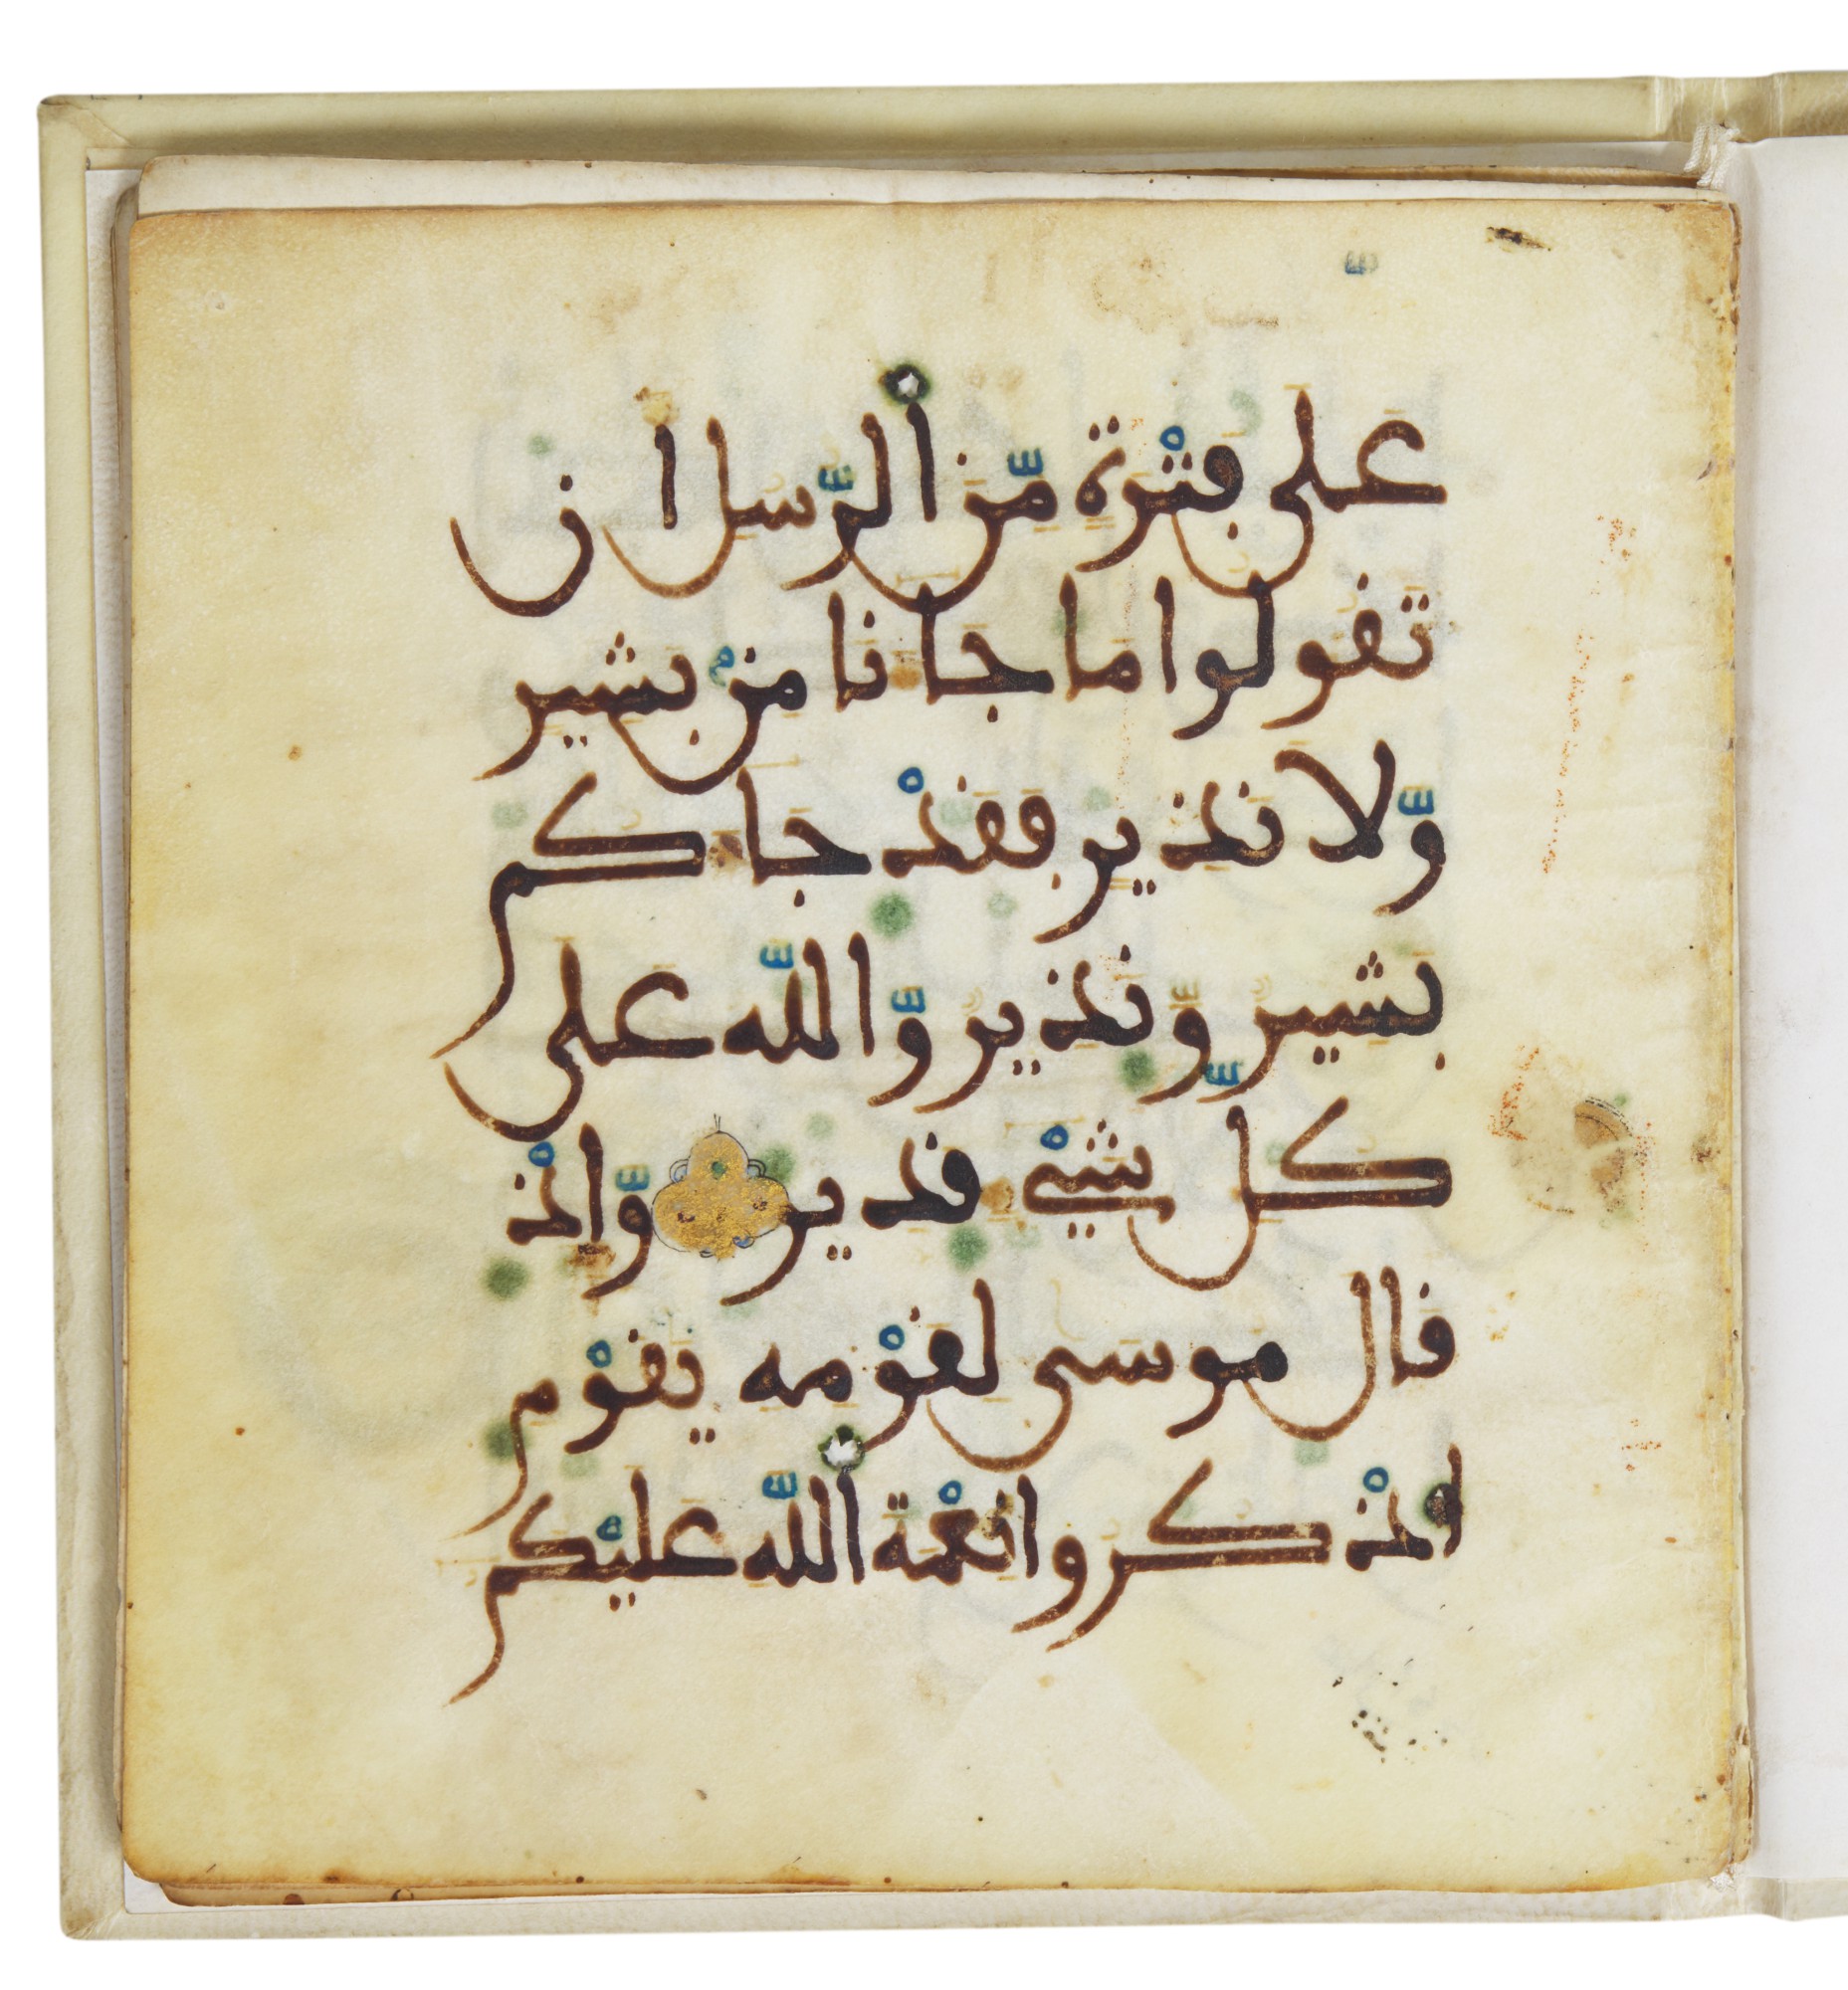 عَلَىٰ فَتْرَةٍ مِّنَ ٱلرُّسُلِ أَن
تَقُولُوا مَا جَآنَا مِنۢ بَشِيرٍ
وَّلَا نَذِيرٍ فَقَدْ جَآكُم
بَشِيرٌ وَّنَذِيرٌ وَّاللَّهُ عَلَىٰ
كُلِّ شَيْءٍ قَدِيرٌ وَّإِذْ
قَالَ مُوسَىٰ لِقَوْمِهِ يَٰقَوْمِ
ٱذْكُرُوا نِعْمَةَ ٱللَّهِ عَلَيْكُم